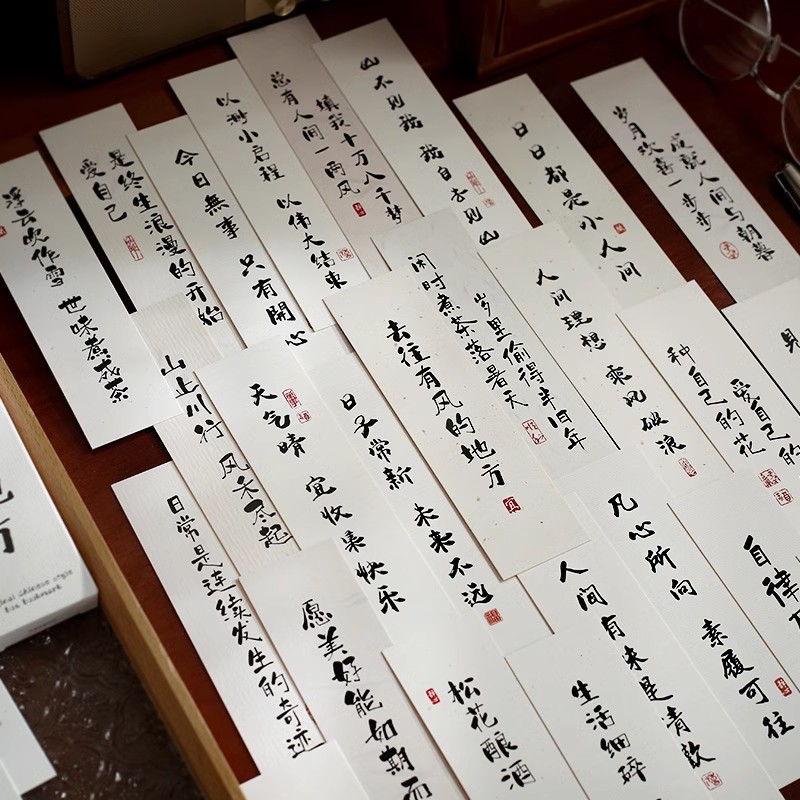 浮云吹作雪 世味煮成茶
爱自己
是终生浪漫的开始
今日無事 只有開心
以渺小启程 以伟大结束
总有人间一两风
填我十万八千梦
山不见我 我自去见山
日日都是小人间
岁月欢喜一步步
成就人间与朝暮
闲时煮茶落暑天
岁里偷得半年
去往有风的地方
人间理想 乘风破浪
种自己的花
爱自己的
山止川行 风禾尽起
天气晴 宜收集快乐
日子常新 未来不远
凡心所向 素履可往
自律
日常是连续发生的奇迹
愿美好能如期而
松花酿酒
生活细碎
人间有味是清欢
Chinese style
Box bookmark